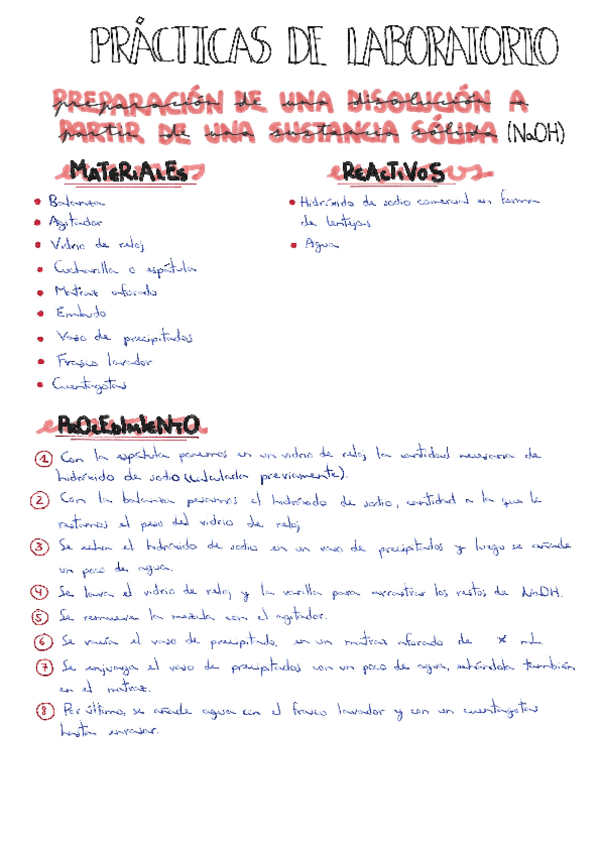 PRÁCTICAS DE LABORATORIO
PREPARACIÓN DE UNA DISOLUCIÓN A
PARTIR DE UNA SUSTANCIA SÓLIDA (NaOH)
MATERIALES
• Balanza
• Agitador
• Vidrio de reloj
• Cucharilla o espátula
• Matraz aforado
• Embudo
• Vaso de precipitados
• Frasco lavador
• Cuentagotas
REACTIVOS
• Hidróxido de sodio comercial en forma
de lentejas
• Agua
PROCEDIMIENTO
1 Con la espátula ponemos en un vidrio de reloj la cantidad necesaria de
hidróxido de sodio (calculada previamente).
2 Con la balanza pesamos el hidróxido de sodio, cantidad a la que le
restamos el peso del vidrio de reloj
3 Se echa el hidróxido de sodio en un vaso de precipitados y luego se añade
un poco de agua.
4 Se lava el vidrio de reloj y la varilla para arrastrar los restos de NaOH.
5 Se remueve la mezcla con el agitador.
6 Se vacía el vaso de precipitado en un matraz aforado de x mL
7 Se enjuaga el vaso de precipitados con un poco de agua, echándola también
en el matraz.
8 Por último, se añade agua con el frasco lavador y con un cuentagotas
hasta enrasar.